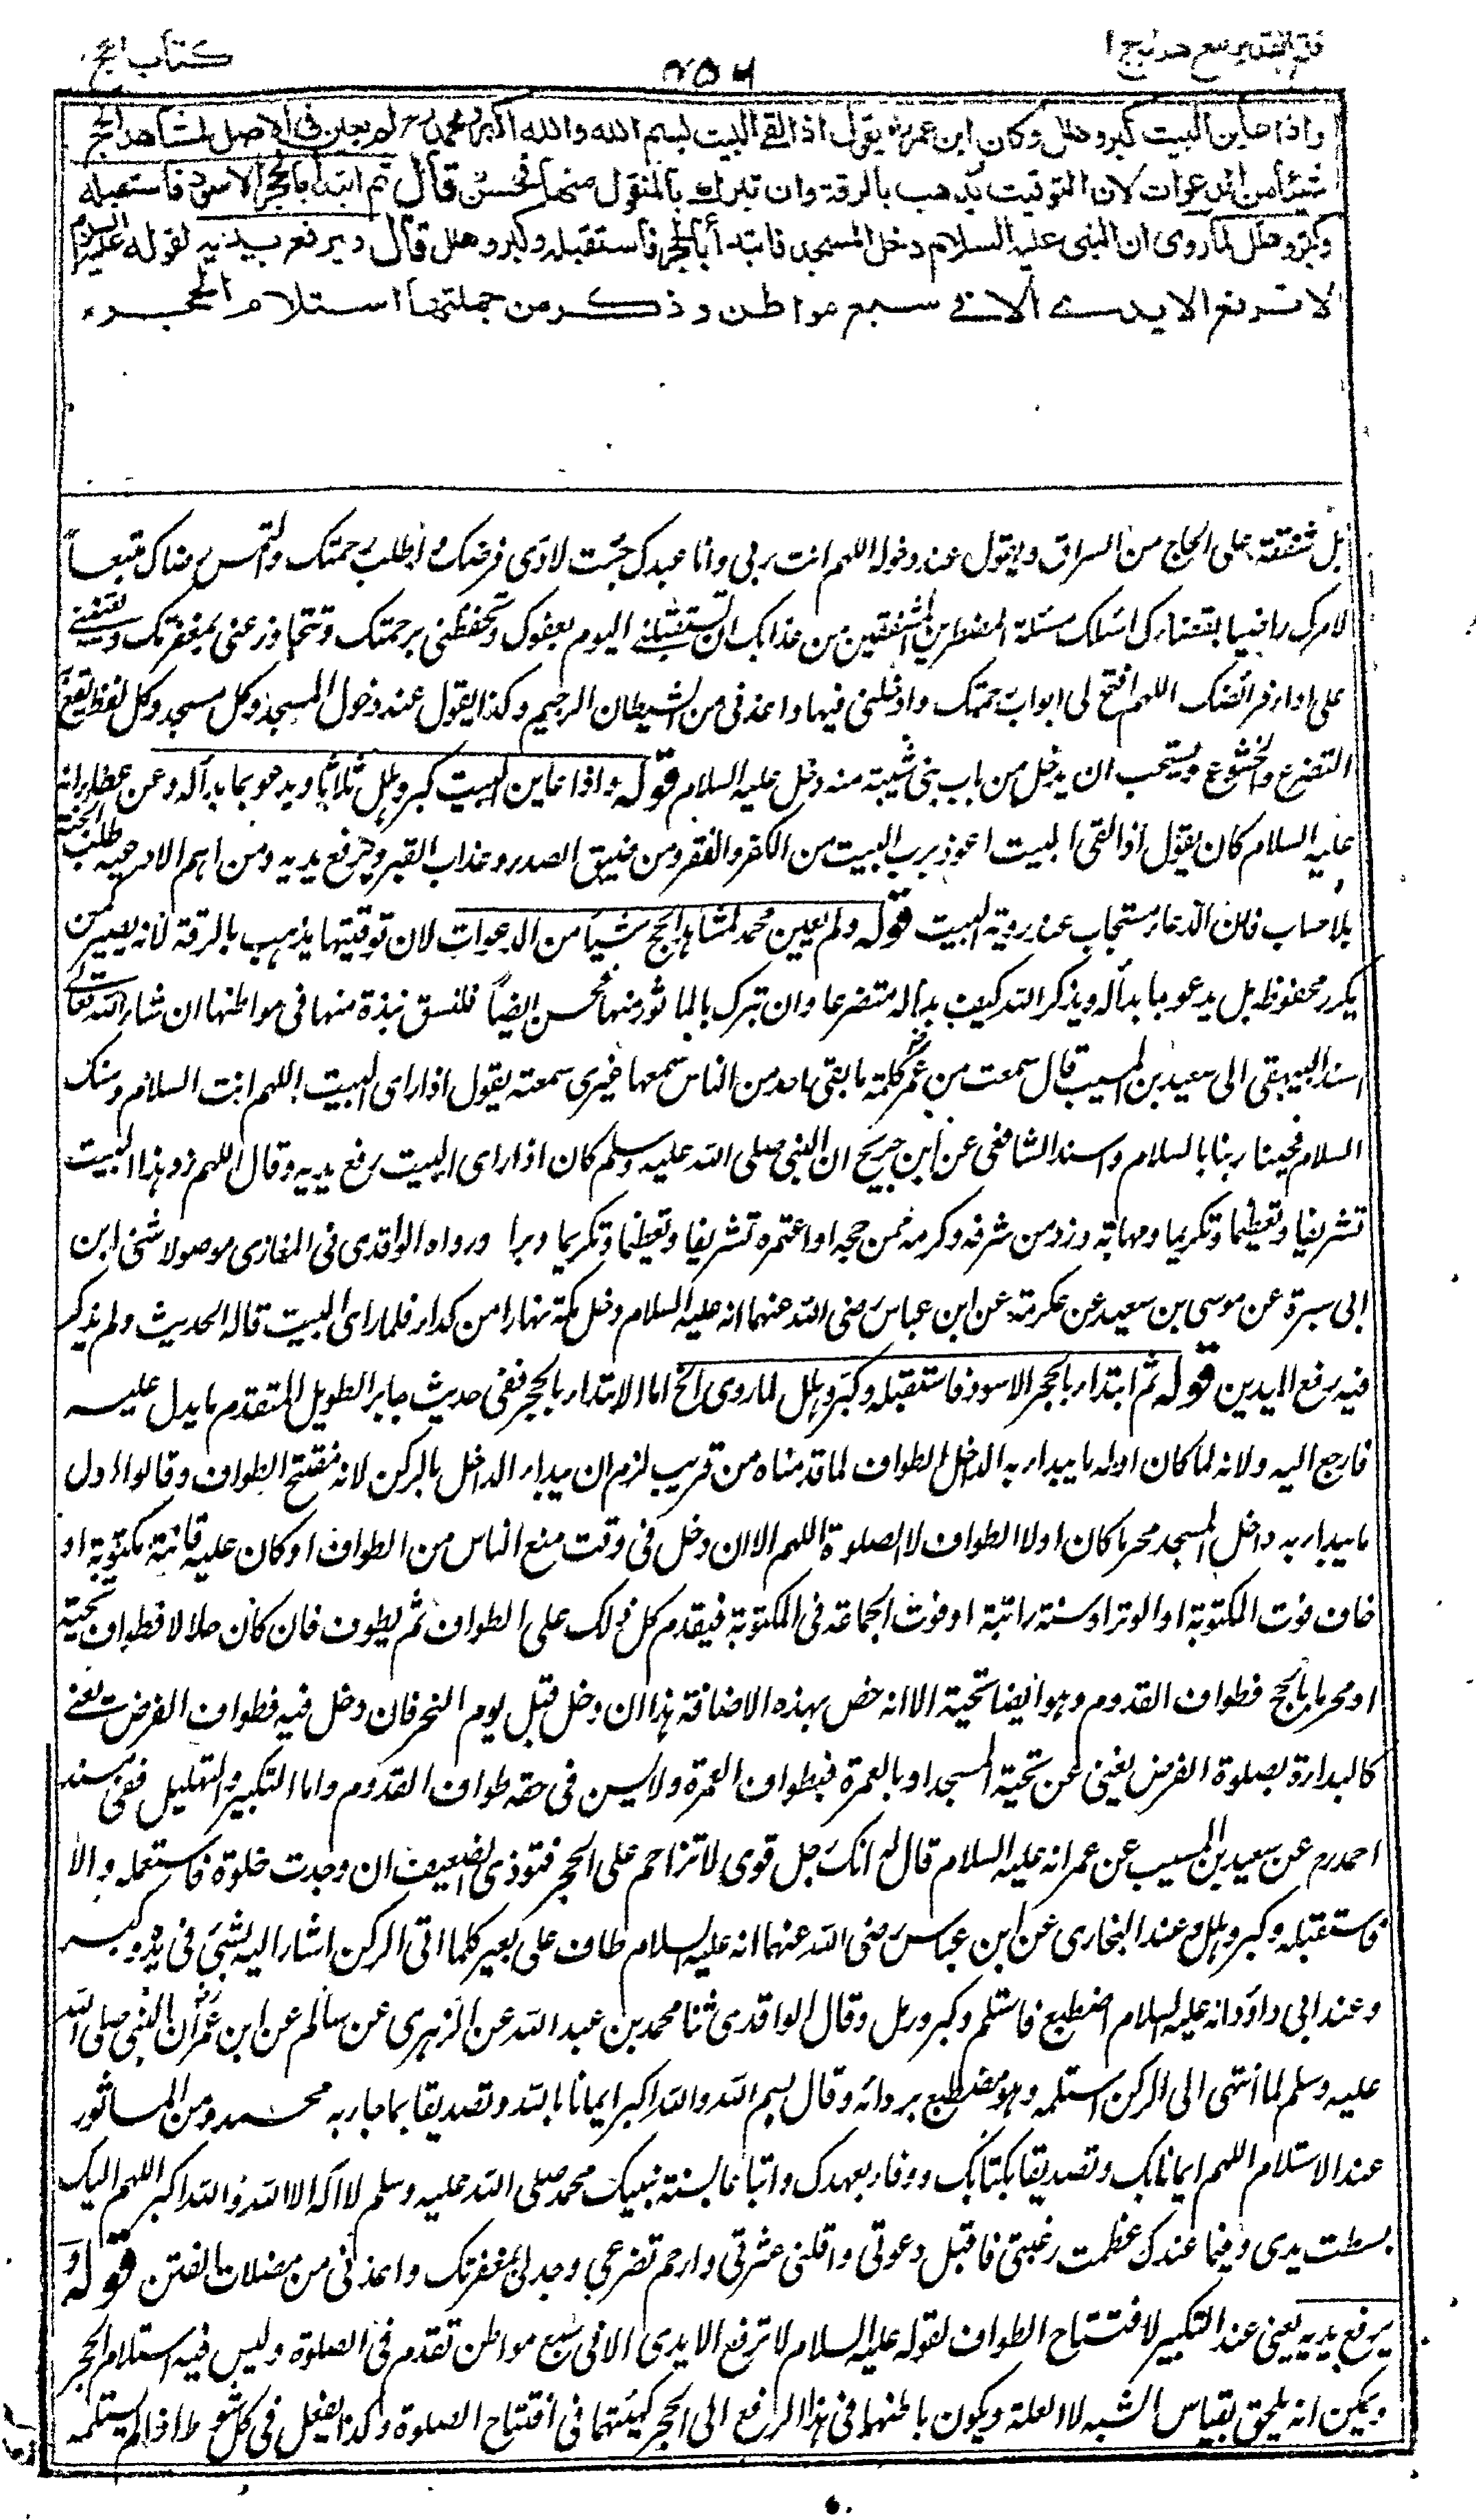 فتح القدير مع هدايه ج ١
٤٥٦
كتاب الحج
واذا عاين البيت كبر وهلل وكان ابن عمر رض يقول اذا لقي البيت بسم الله والله اكبر ومحمد رح لم يعين في الاصل لمشاهد الحج
شيئا من الدعوات لان التوقيت يذهب بالرقة وان تبرك بالمنقول منها فحسن قال ثم ابتدأ بالحجر الاسود فاستقبله
وكبر وهلل لما روى ان النبي عليه السلام دخل المسجد فابتدأ بالحجر فاستقبله وكبر وهلل قال ويرفع يديه لقوله عليه السلام
لا ترفع الايدي الا في سبع مواطن وذكر من جملتها استلام الحجر
بل شفقة على الحاج من السراق ويقول عند دخوله اللهم انت ربي وانا عبدك جئت لاؤدى فرضك واطلب رحمتك والتمس رضاك متبعاً
لامرك راضيا بقضاءك اسئلك مسئلة المضطرين المشفقين من عذابك ان تستقبلني اليوم بعفوك وتحفظني برحمتك وتتجاوز عني بمغفرتك وتعينني
على اداء فرائضك اللهم افتح لي ابواب رحمتك وادخلني فيها واعذني من الشيطان الرجيم وكذا يقول عند دخول المسجد وكل مسجد وكل لفظ يقع به
التضرع والخشوع ويستحب ان يدخل من باب بني شيبة منه دخل عليه السلام قوله واذا عاين البيت كبر وهلل ثلاثا ويدعو بما بدأ له وعن عطاء انه
عليه السلام كان يقول اذا لقى البيت اعوذ برب البيت من الكفر والفقر ومن ضيق الصدر وعذاب القبر ويرفع يديه ومن اهم الادعيه طلب الجنة
بلا حساب فان الدعاء مستجاب عند روية البيت قوله ولم يعين محمد لمشاهد الحج شيأ من الدعوات لان توقيتها يذهب بالرقة لانه يصير كمن
يكرر محفوظه بل يدعو بما بدأ له ويذكر الله كيف بدأ له متضرعا وان تبرك بالماثور منها فحسن ايضاً فلنسق نبذة منها في مواطنها ان شاء الله تعالى
اسند البيهقي الى سعيد بن المسيب قال سمعت من عمر رض كلمة ما بقي احد من الناس سمعها غيرى سمعته يقول اذا راى البيت اللهم انت السلام ومنك
السلام فحينا ربنا بالسلام واسند الشافعي عن ابن جريج ان النبي صلى الله عليه وسلم كان اذا راى البيت رفع يديه وقال اللهم زد هذا البيت
تشريفا وتعظيما وتكريما ومهابة وزد من شرفه وكرمه ممن حجه او اعتمره تشريفا وتعظيما وتكريما وبرا ورواه الواقدى في المغازى موصولا ثنى ابن
ابى سبرة عن موسى بن سعيد عن عكرمة عن ابن عباس رضى الله عنهما انه عليه السلام دخل مكة نهارا من كداء فلما راى البيت قاله الحديث ولم يذكر
فيه رفع اليدين قوله ثم ابتداء بالحجر الاسود فاستقبله وكبر وهلل لما روى الخ اما الابتداء بالحجر ففى حديث جابر الطويل المتقدم ما يدل عليه
فارجع اليه ولانه لما كان اوله ما يبداء به الداخل الطواف لما قدمناه من قريب لزم ان يبداء الداخل بالركن لانه مفتتح الطواف وقالوا اول
ما يبداء به داخل المسجد محرما كان اولا الطواف لا الصلوة اللهم الا ان دخل فى وقت منع الناس من الطواف او كان عليه فائتة مكتوبة او
خاف فوت المكتوبة او الوتر او سنة راتبة او فوت الجماعة فى المكتوبة فيقدم كل ذلك على الطواف ثم يطوف فان كان حلالا فطواف تحية
او محرما بالحج فطواف القدوم وهو ايضا تحية الا انه خص بهذه الاضافة هذا ان دخل قبل يوم النحر فان دخل فيه فطواف الفرض يغني
كالبداءة بصلوة الفرض يغني عن تحية المسجد او بالعمرة فبطواف العمرة ولا يسن في حقه طواف القدوم واما التكبير والتهليل ففى مسند
احمد رح عن سعيد بن المسيب عن عمر انه عليه السلام قال له انك رجل قوى لا تزاحم على الحجر فتوذى الضعيف ان وجدت خلوة فاستلمه والا
فاستقبله وكبر وهلل وعند البخارى عن ابن عباس رضى الله عنهما انه عليه السلام طاف على بعير كلما اتى الركن اشار اليه بشئ في يده وكبر
وعند ابى داؤد انه عليه السلام اضطبع فاستلم وكبر ورمل وقال الواقدى ثنا محمد بن عبد الله عن الزهرى عن سالم عن ابن عمر رض ان النبي صلى الله
عليه وسلم لما انتهى الى الركن استلمه وهو مضطبع بردائه وقال بسم الله والله اكبر ايمانا بالله وتصديقا بما جاء به محمد ومن الماثور
عند الاستلام اللهم ايمانا بك وتصديقا بكتابك ووفاء بعهدك واتباعا لسنة نبيك محمد صلى الله عليه وسلم لا اله الا الله والله اكبر اللهم اليك
بسطت يدى وفيما عندك عظمت رغبتى فاقبل دعوتى واقلنى عثرتى وارحم تضرعى وجد لى بمغفرتك واعذنى من مضلات الفتن قوله و
يرفع يديه يعنى عند التكبير لافتتاح الطواف لقوله عليه السلام لا ترفع الايدى الا فى سبع مواطن تقدم فى الصلوة وليس فيه استلام الحجر
ويمكن انه يلحق بقياس الشبه لا العلة ويكون باطنهما فى هذا الرفع الى الحجر كهيئتهما فى افتتاح الصلوة وكذا يفعل فى كل شوط اذا لم يستلمه